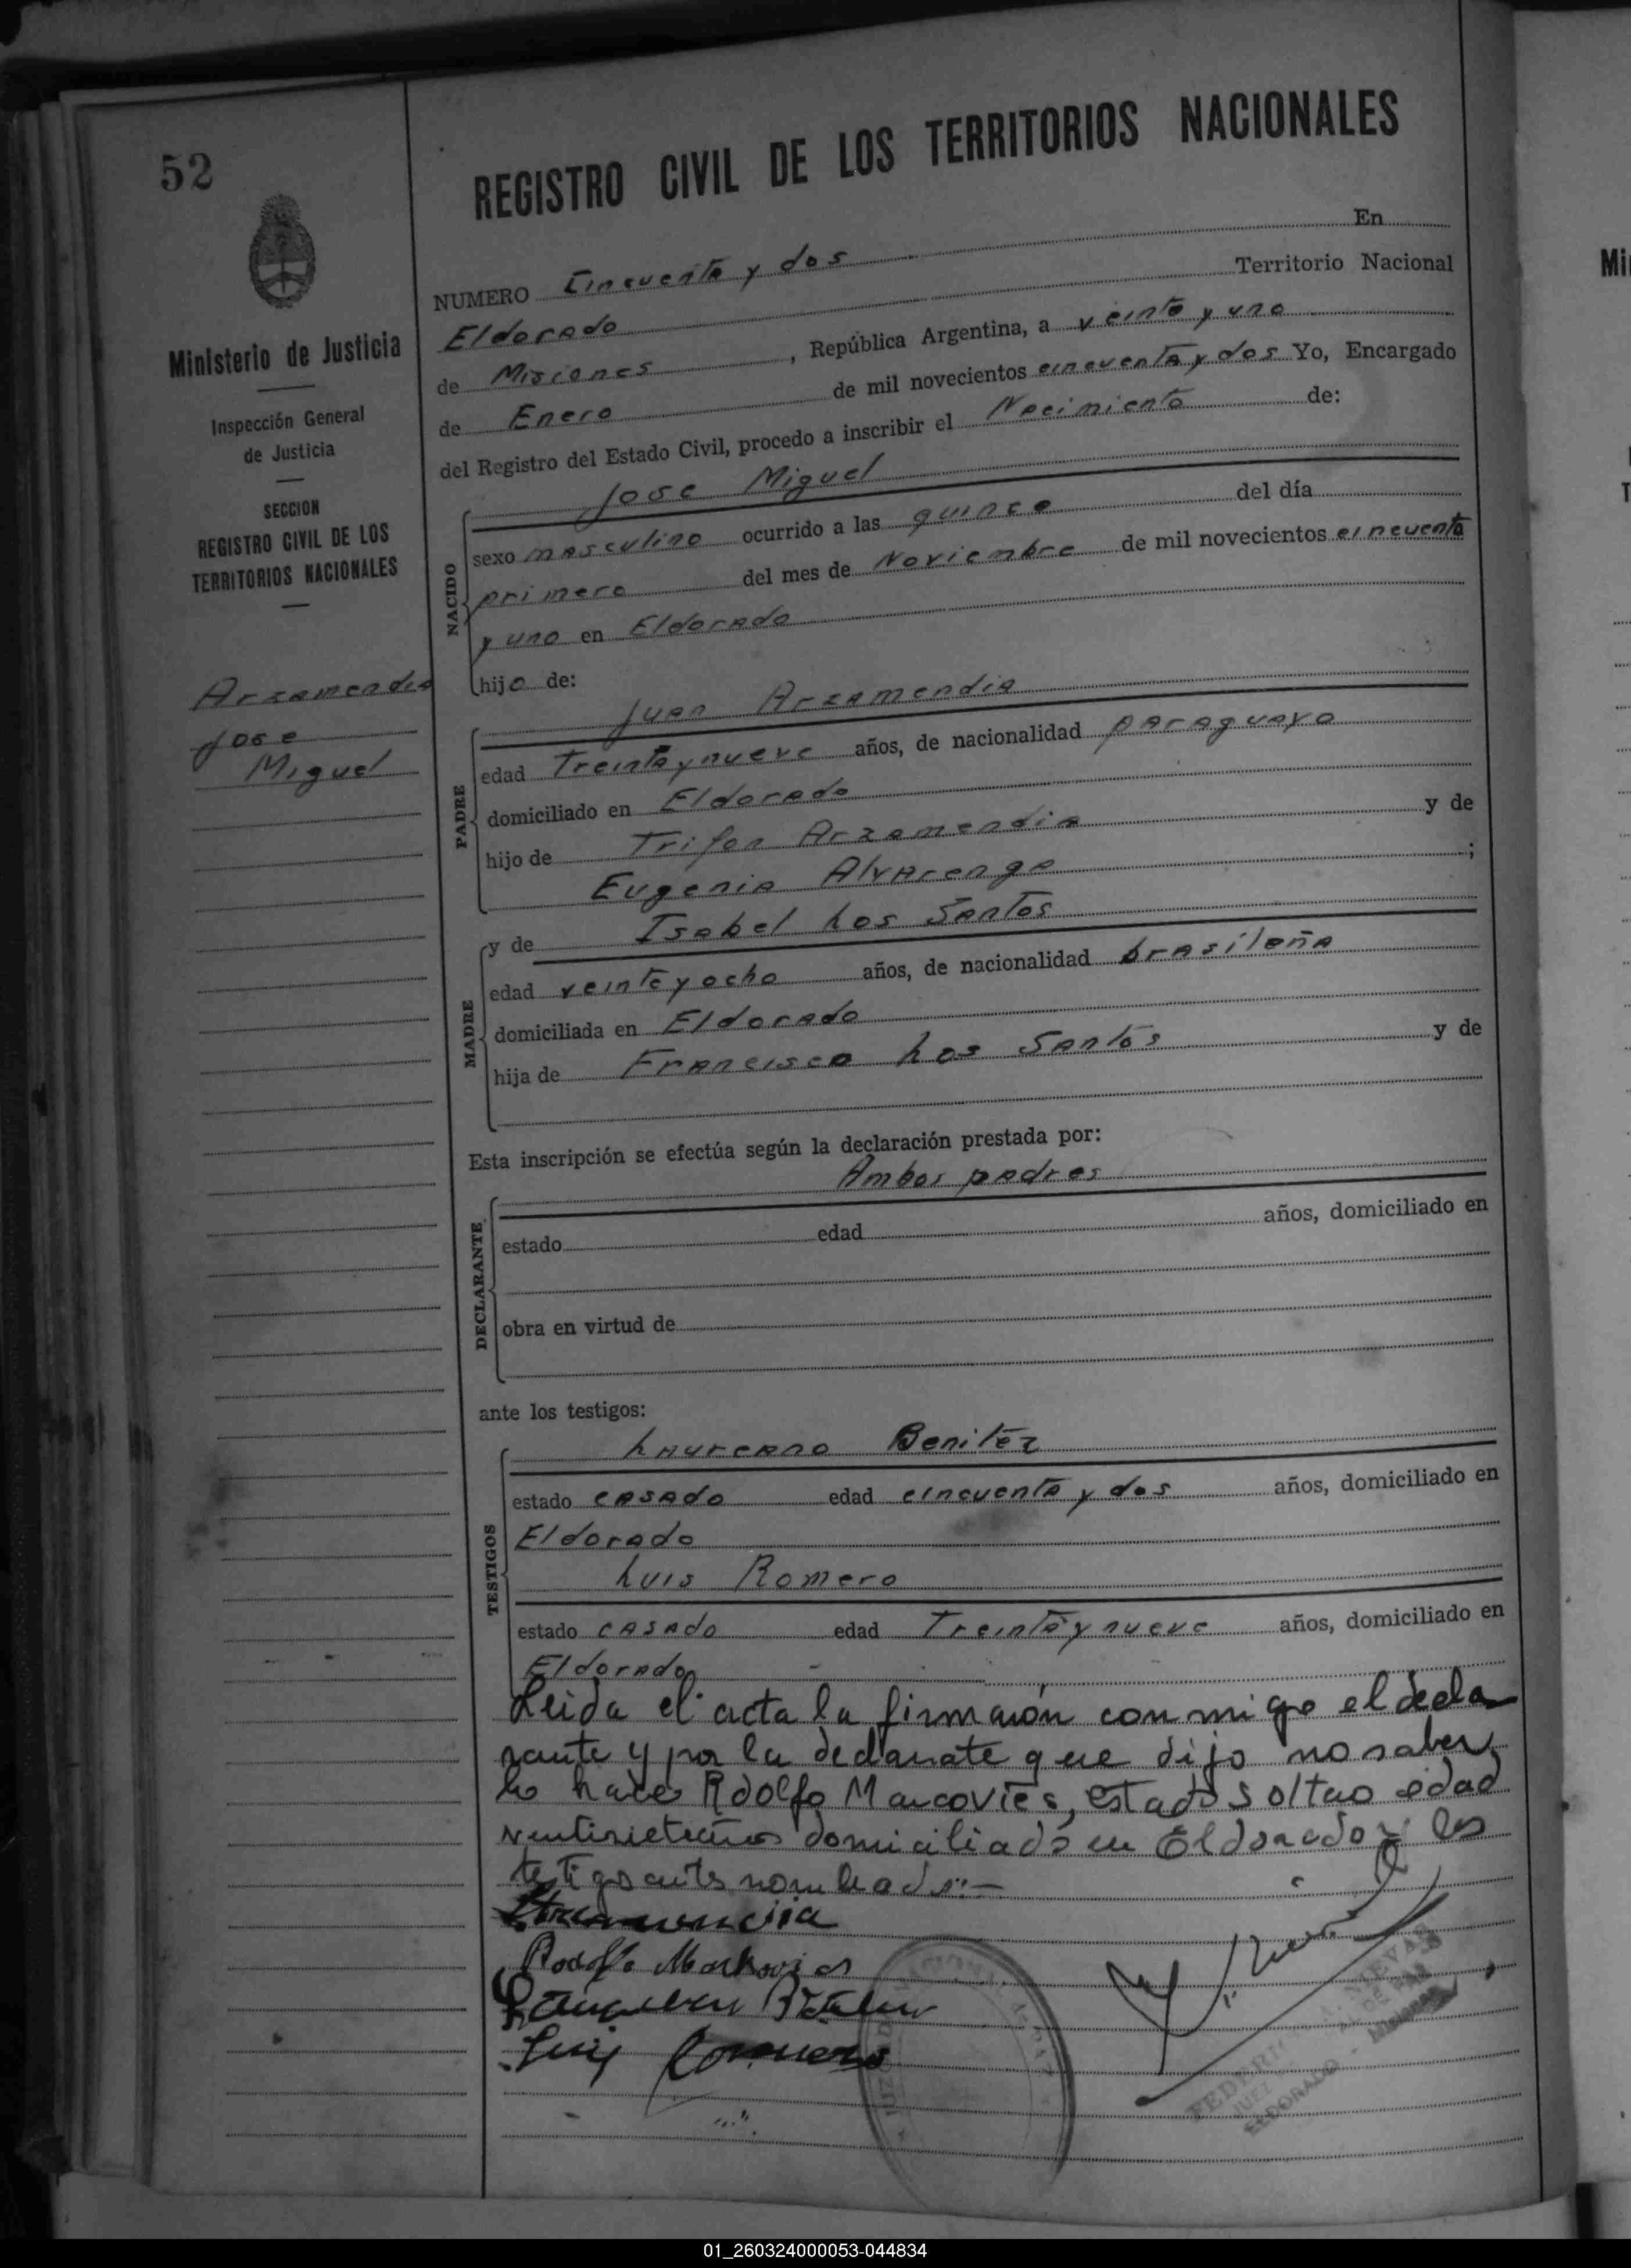 52
Ministerio de Justicia
Inspección General
de Justicia
SECCION
REGISTRO CIVIL DE LOS
TERRITORIOS NACIONALES
Arzamendia
Jose
Miguel
REGISTRO CIVIL DE LOS TERRITORIOS NACIONALES
NUMERO Cincuenta y dos En
Eldorado Territorio Nacional
de Misiones, República Argentina, a veinte y uno
de Enero de mil novecientos cincuenta y dos Yo, Encargado
del Registro del Estado Civil, procedo a inscribir el Nacimiento de:
NACIDO
Jose Miguel
sexo masculino ocurrido a las quince del día
primero del mes de Noviembre de mil novecientos cincuenta
y uno en Eldorado
hijo de:
PADRE
Juan Arzamendia
edad Treinta y nueve años, de nacionalidad paraguaya
domiciliado en Eldorado
hijo de Trifon Arzamendia y de
Eugenia Alvarenga ;
MADRE
y de Isabel Los Santos
edad veinte y ocho años, de nacionalidad brasileña
domiciliada en Eldorado
hija de Francisca Los Santos y de
Esta inscripción se efectúa según la declaración prestada por:
DECLARANTE
Ambos padres
estado edad años, domiciliado en
obra en virtud de
ante los testigos:
TESTIGOS
Laureano Benitez
estado casado edad cincuenta y dos años, domiciliado en
Eldorado
Luis Romero
estado casado edad Treinta y nueve años, domiciliado en
Eldorado
Leida el acta la firmarón conmigo el decla
rante y por la declarate que dijo no saber
lo hace Rdolfo Marcovies, estado soltro edad
domiciliado en Eldorado y los
testigos antes nombrados:—
Rodolfo Markovies
Luis Romero
JUZGADO NACIONAL
FEDERICO A. NEVAS
JUEZ DE PAZ
ELDORADO - Misiones
01_260324000053-044834